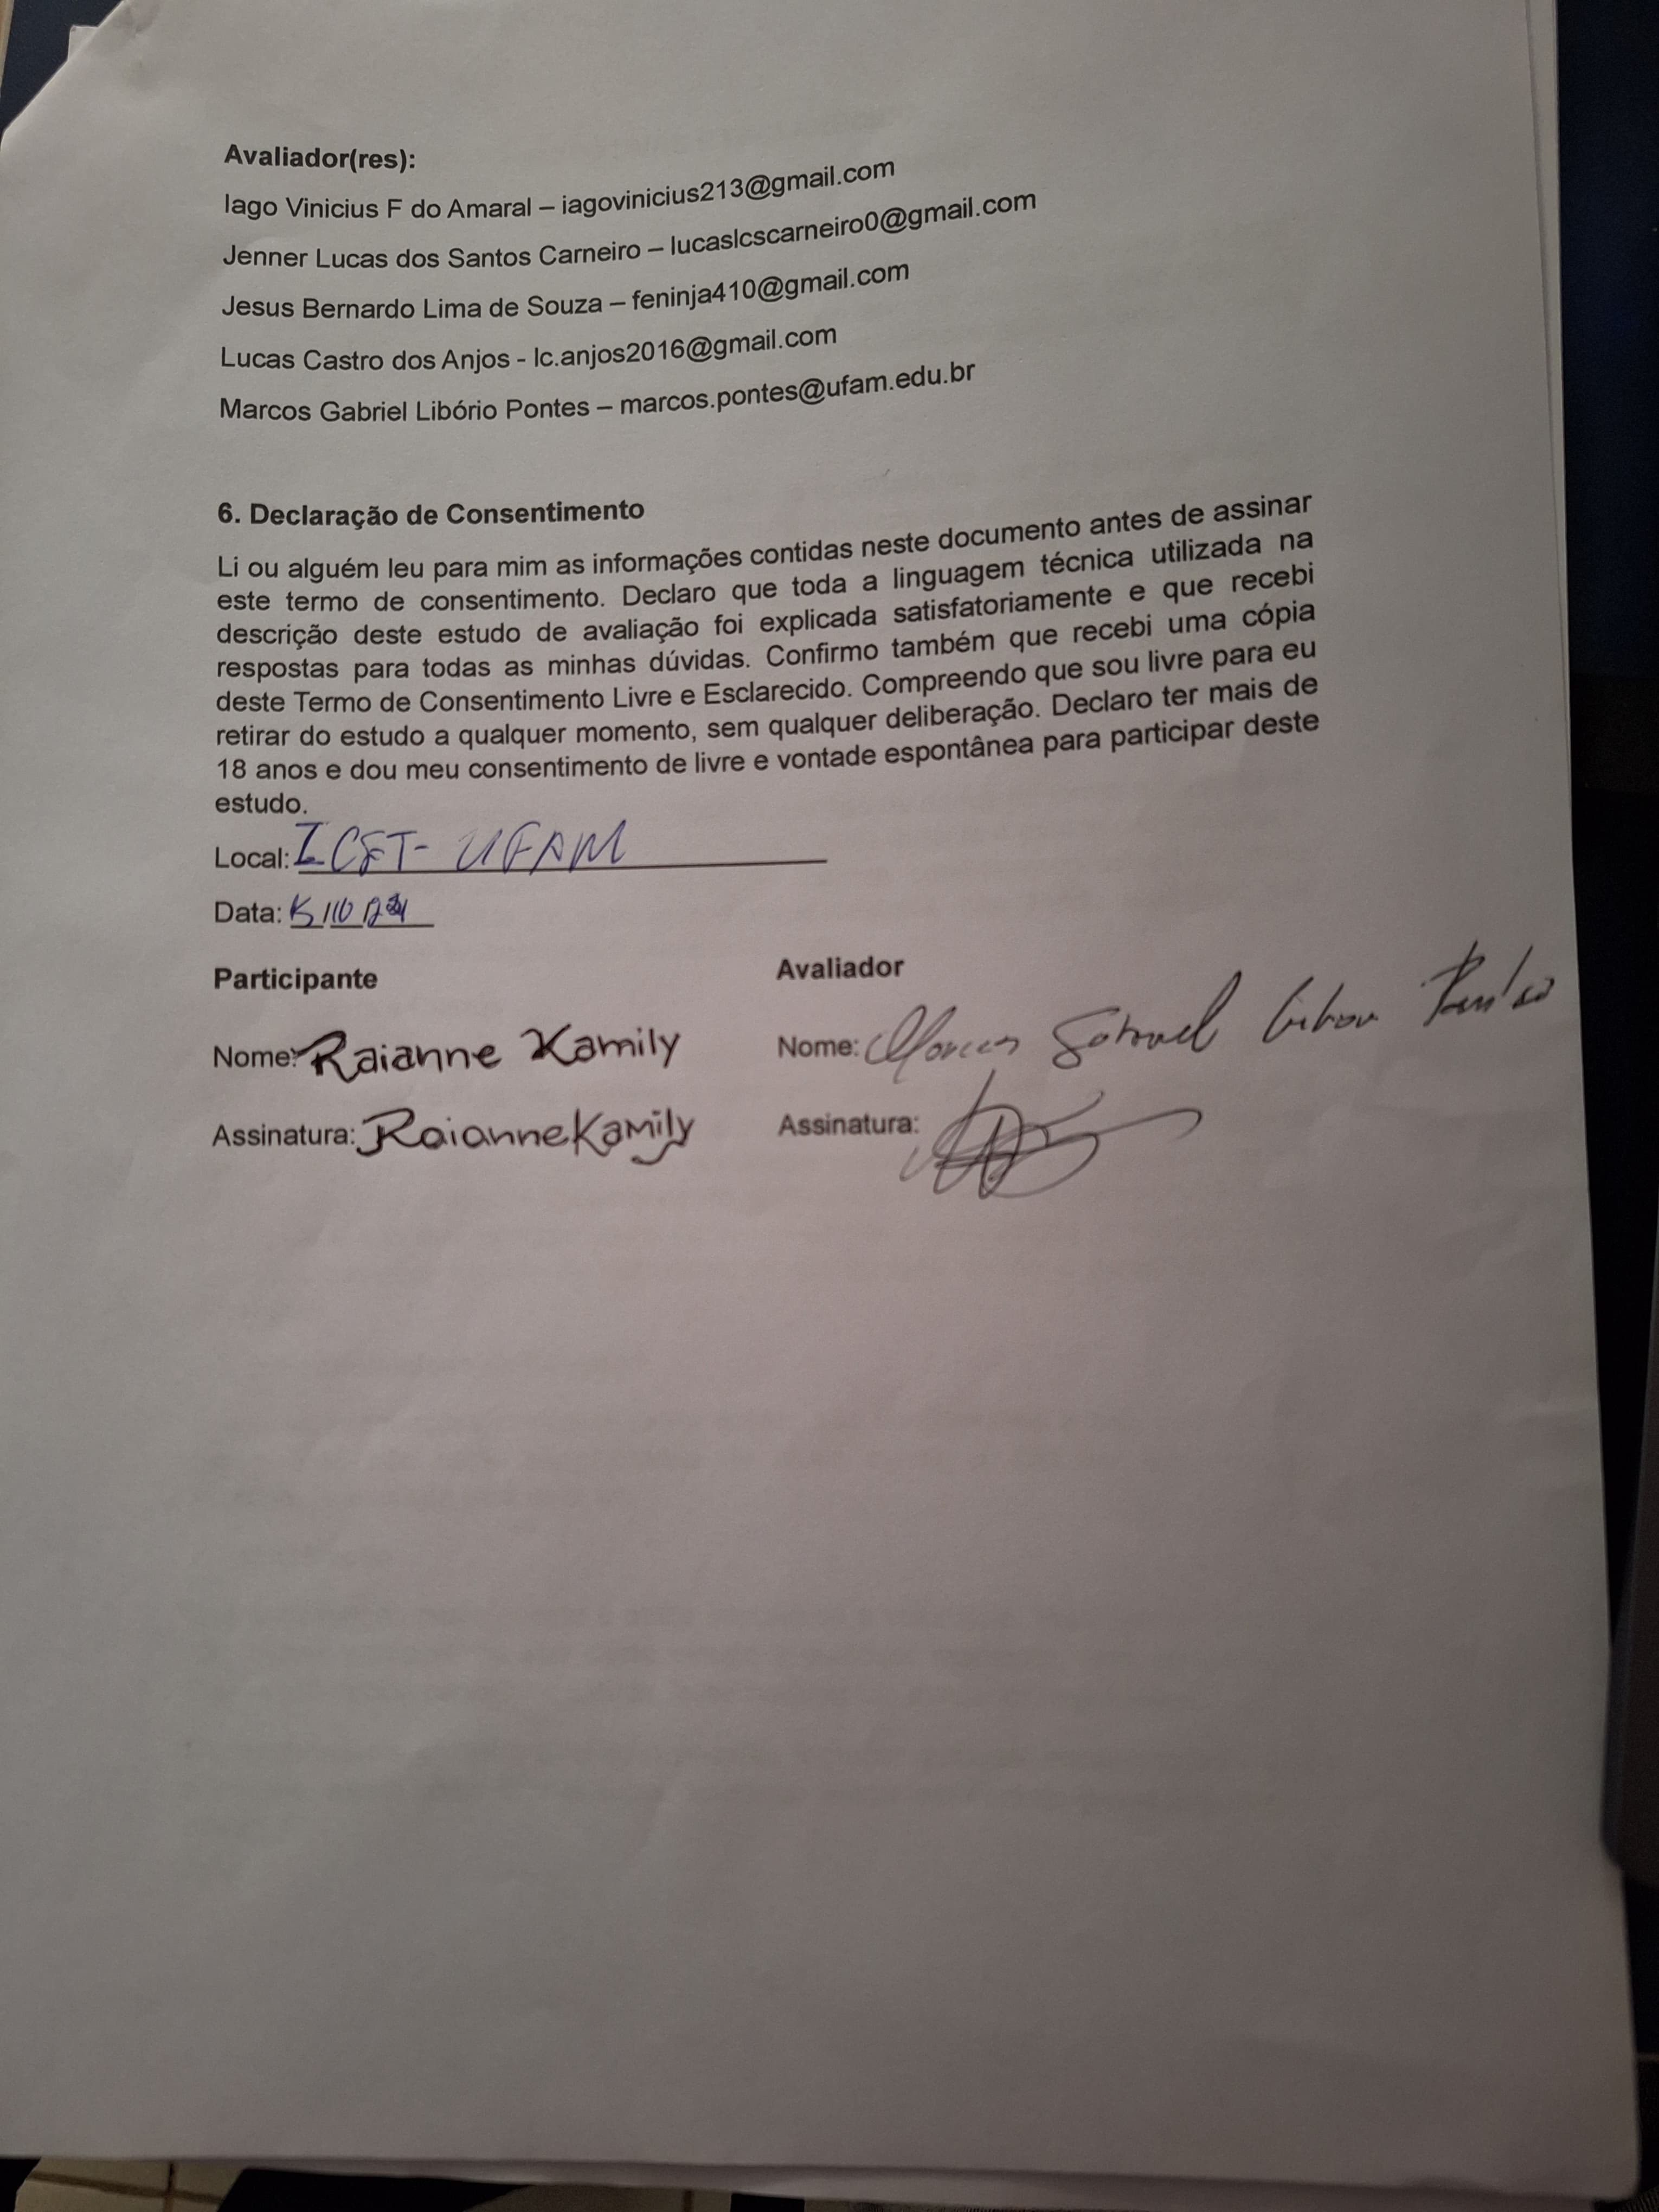 Avaliador(res):
Iago Vinicius F do Amaral – iagovinicius213@gmail.com
Jenner Lucas dos Santos Carneiro – lucaslcscarneiro0@gmail.com
Jesus Bernardo Lima de Souza – feninja410@gmail.com
Lucas Castro dos Anjos - lc.anjos2016@gmail.com
Marcos Gabriel Libório Pontes – marcos.pontes@ufam.edu.br
6. Declaração de Consentimento
Li ou alguém leu para mim as informações contidas neste documento antes de assinar
este termo de consentimento. Declaro que toda a linguagem técnica utilizada na
descrição deste estudo de avaliação foi explicada satisfatoriamente e que recebi
respostas para todas as minhas dúvidas. Confirmo também que recebi uma cópia
deste Termo de Consentimento Livre e Esclarecido. Compreendo que sou livre para eu
retirar do estudo a qualquer momento, sem qualquer deliberação. Declaro ter mais de
18 anos e dou meu consentimento de livre e vontade espontânea para participar deste
estudo.
Local: ICET- UFAM
Data:
Participante Avaliador
Nome: Raianne Kamily Nome: Marcos Gabriel
Assinatura: Raianne Kamily Assinatura: